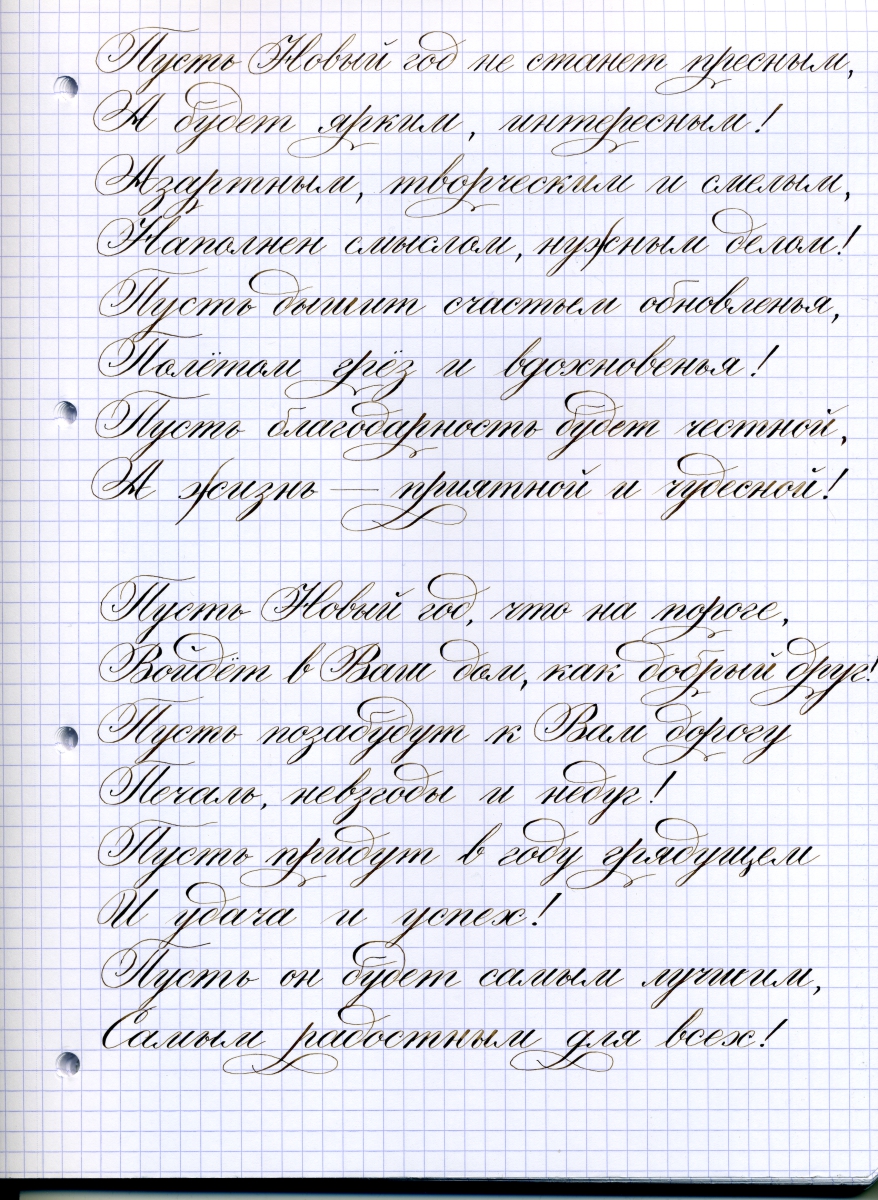 Пусть Новый год не станет пресным,
А будет ярким, интересным!
Азартным, творческим и смелым,
Наполнен смыслом, нужным делом!
Пусть дышит счастьем обновленья,
Полётом грёз и вдохновенья!
Пусть благодарность будет честной,
А жизнь — приятной и чудесной!
Пусть Новый год, что на пороге,
Войдёт в Ваш дом, как добрый друг!
Пусть позабудут к Вам дорогу
Печаль, невзгоды и недуг!
Пусть придут в году грядущем
И удача и успех!
Пусть он будет самым лучшим,
Самым радостным для всех!